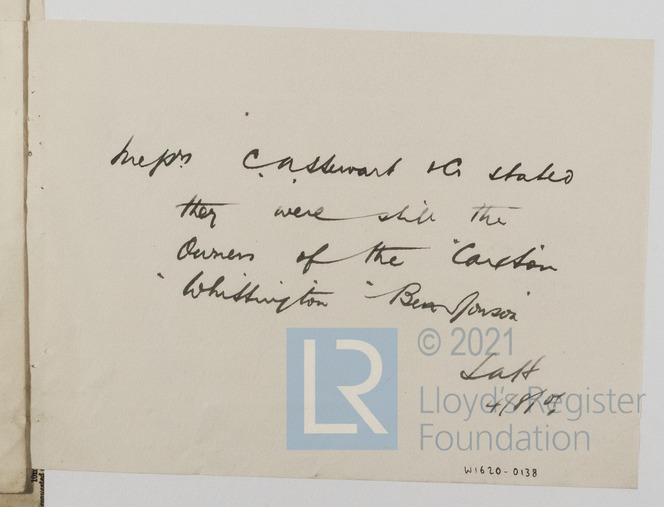 Messrs C. A. Stewart & Co stated
they were still the
Owners of the "Caxton"
"Whittington" "Ben Jonson"
LR © 2021
Lloyd's Register
Foundation
W1620-0138